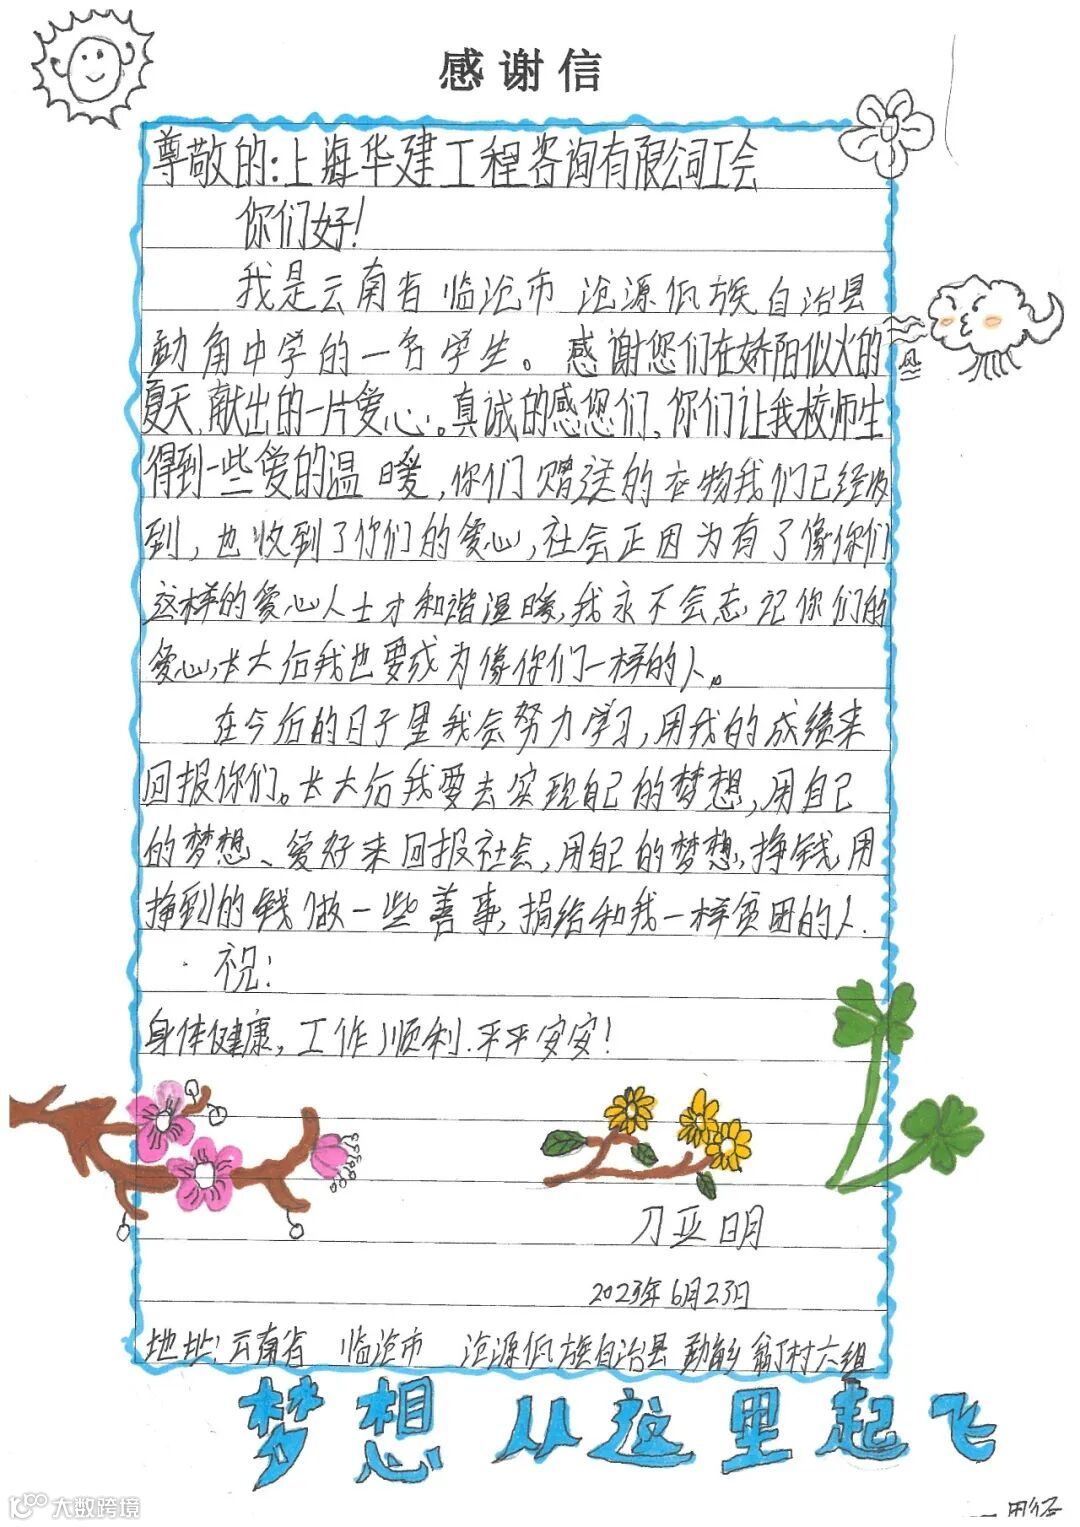 感谢信
尊敬的:上海华建工程咨询有限公司工会
你们好!
我是云南省 临沧市 沧源佤族自治县
勐角中学的一名学生。感谢您们在娇阳似火的
夏天,献出的一片爱心。真诚的感您们、你们让我校师生
得到一些爱的温暖,你们赠送的衣物我们已经收
到,也收到了你们的爱心,社会正因为有了像你们
这样的爱心人士才和谐温暖,我永不会忘记你们的
爱心,长大后我也要成为像你们一样的人。
在今后的日子里我会努力学习,用我的成绩来
回报你们。长大后我要去实现自己的梦想,用自己
的梦想、爱好来回报社会,用自己的梦想,挣钱,用
挣到的钱做一些善事,捐给和我一样贫困的人.
祝:
身体健康,工作顺利.平平安安!
刀亚明
2023年6月23日
地址:云南省 临沧市 沧源佤族自治县 勐角乡 翁丁村六组
梦想 从这里起飞
大数跨境